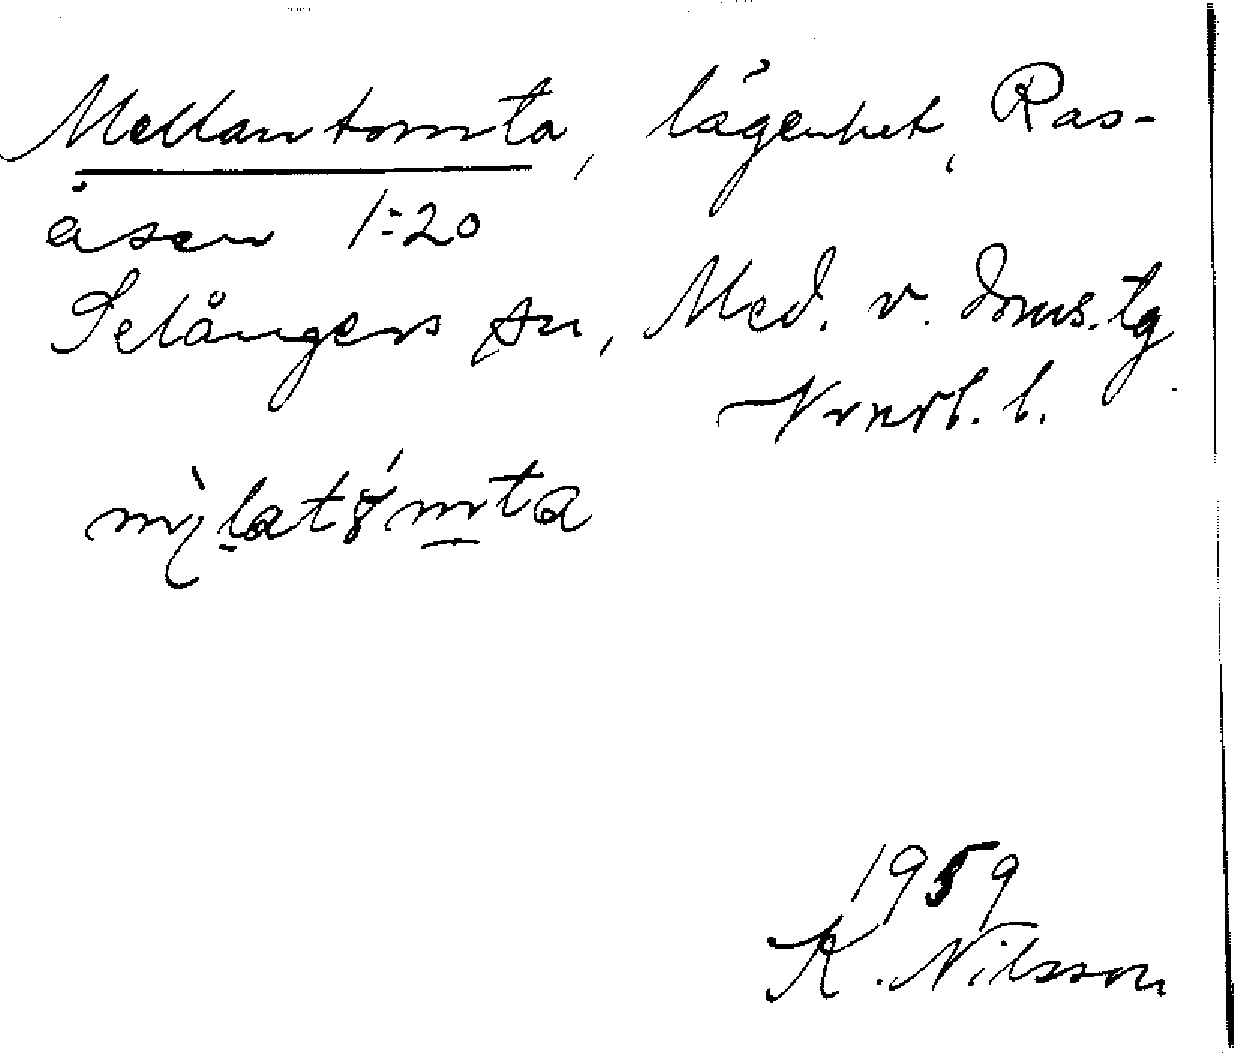 Mellantomta, lägenhet, Ras-
åsen 1:20
Selångers sn, Med. v. doms.tg
Vnrl. l.
1959
K. Nilsson